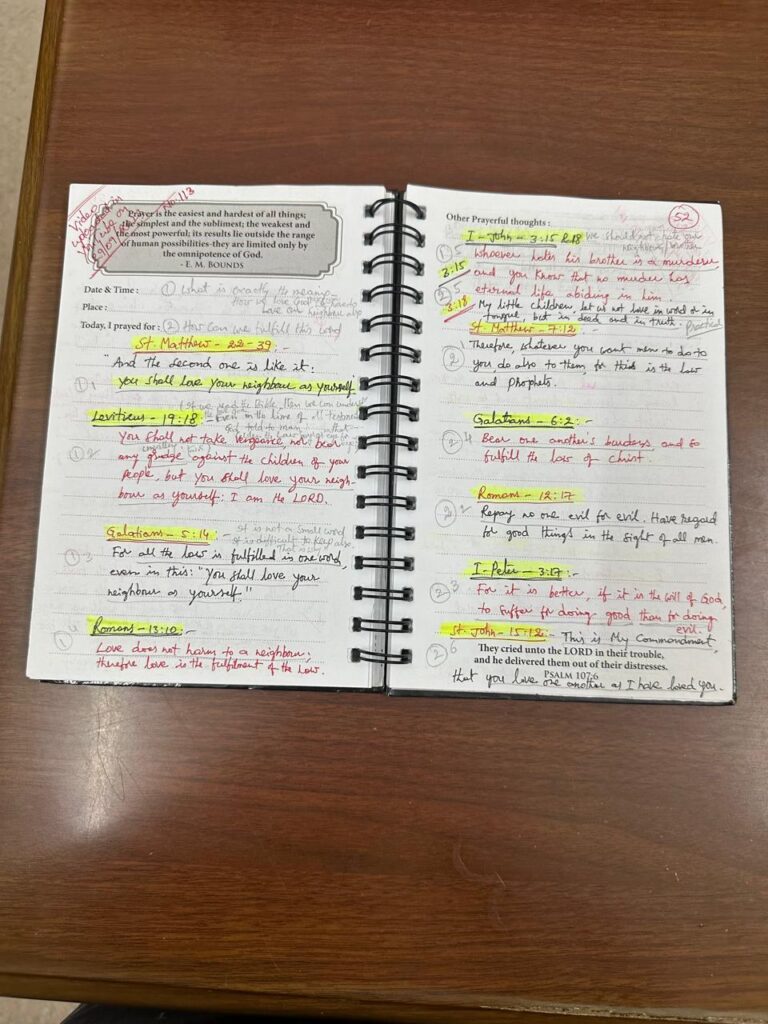 Video
uploaded in
You tube on
No: 113
Prayer is the easiest and hardest of all things;
the simplest and the sublimest; the weakest and
the most powerful; its results lie outside the range
of human possibilities-they are limited only by
the omnipotence of God.
- E. M. BOUNDS
Date & Time : ① What is exactly the meaning
How we love God
Love our neighbour also
Place :
Today, I prayed for : ② How can we fulfill this
St. Matthew - 22-39
"And the second one is like it:
① 1 You shall love your neighbour as yourself.
Leviticus - 19:18
You shall not take vengeance, nor bear
① 2 any grudge against the children of your
people, but you shall love your neigh-
bour as yourself: I am the LORD.
Galatians - 5:14 It is not a small word
It is difficult to keep also
That is why
① 3 For all the law is fulfilled in one word,
even in this: "You shall love your
neighbour as yourself."
Romans - 13:10:-
① 4 Love does not harm to a neighbour;
therefore love is the fulfilment of the law.
Other Prayerful thoughts :
52
I - John - 3:15 & 18 we should not hate our
neighbour/brother
① 5 Whoever hates his brother is a murderer
3:15 and you know that no murder has
② 5 eternal life abiding in him.
3:18 My little children let us not love in word or in
tongue, but in deed and in truth. Practical
St. Matthew - 7:12 :-
② 1 Therefore, whatever you want men to do to
you, do also to them, for this is the law
and Prophets.
Galatians - 6:2 :-
② 4 Bear one another's burdens, and so
fulfill the law of Christ.
Romans - 12:17
② 2 Repay no one evil for evil. Have regard
for good things in the sight of all men.
I - Peter - 3:17 :-
② 3 For it is better, if it is the will of God,
to suffer for doing good than for doing
evil.
St. John - 15:12 :- This is My Commandment,
② 6 They cried unto the LORD in their trouble,
and he delivered them out of their distresses.
PSALM 107:6
that you love one another as I have loved you.